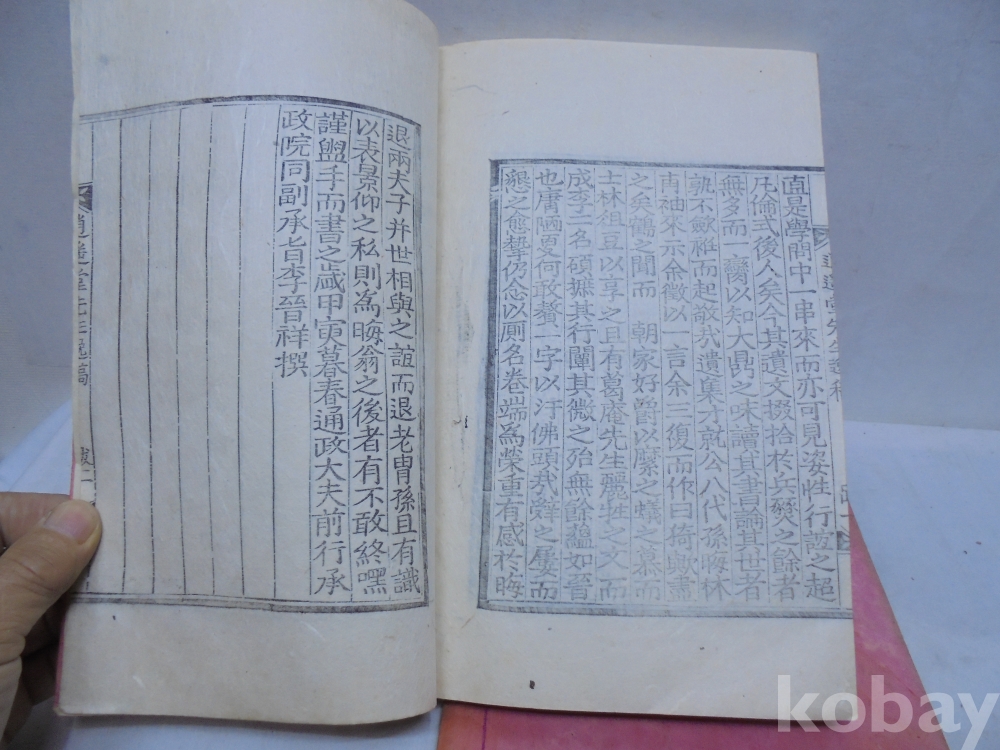 直是學問中一串來而亦可見姿性行誼之超
凡倫式後人矣今其遺文掇拾於兵燹之餘者
無多而一臠以知大鼎之味讀其書論其世者
孰不歛袵而起敬哉遺集才就公八代孫晦林
甫袖來示余徵以一言余三復而作曰猗歟
之矣鶴之聞而 朝家好爵以縻之蟻之慕而
士林俎豆以享之且有葛庵先生麗牲之文而
成李二名碩攄其行闡其微之殆無餘蘊如晉
也膚陋夏何敢贅一字以汙佛頭哉辭之屢而
懇之愈摯仍念以厠名卷端爲榮重有感於晦
退兩夫子并世相與之誼而退老冑孫且有識
以表景仰之私則爲晦翁之後者有不敢終嘿
謹盥手而書之歲甲寅暮春通政大夫前行承
政院同副承旨李晉祥撰
堂先生逸稿
跋二